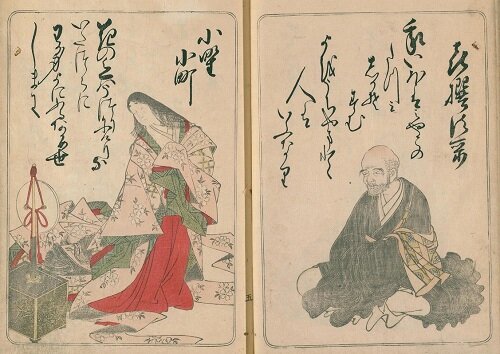 喜撰法師
我いほはみやこの
たつみ
しかそ
すむ
よをうち山と
人は
いふなり
小野
小町
花の色はうつりにけりな
いたつらに
わか身よにふるなかめせ
しまに
五